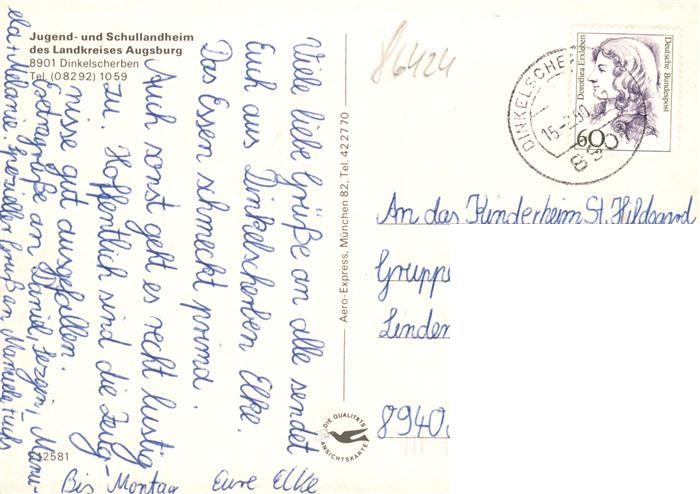 Jugend- und Schullandheim
des Landkreises Augsburg
8901 Dinkelscherben
Tel. (08292) 1059
Viele liebe Grüße an alle sendet
Euch aus Dinkelscherben Elke.
Das Essen schmeckt prima.
Auch sonst geht es recht lustig
zu. Hoffentlich sind die Zeug-
nisse gut ausgefallen.
Extragrüße an Daniel, Sezgin, Manu-
ela + Melanie spezieller Gruß an Manuela Fuchs
Bis Montag Eure Elke
Z12581
Aero-Express, München 82, Tel. 42 27 70
DIE QUALITÄTS
ANSICHTSKARTE
86424
DINKELSCHE
15.-2.90
89
Dorothea Erxleben
Deutsche Bundespost
60
An das Kinderheim St. Hildegard
Gruppe
Linden
8940